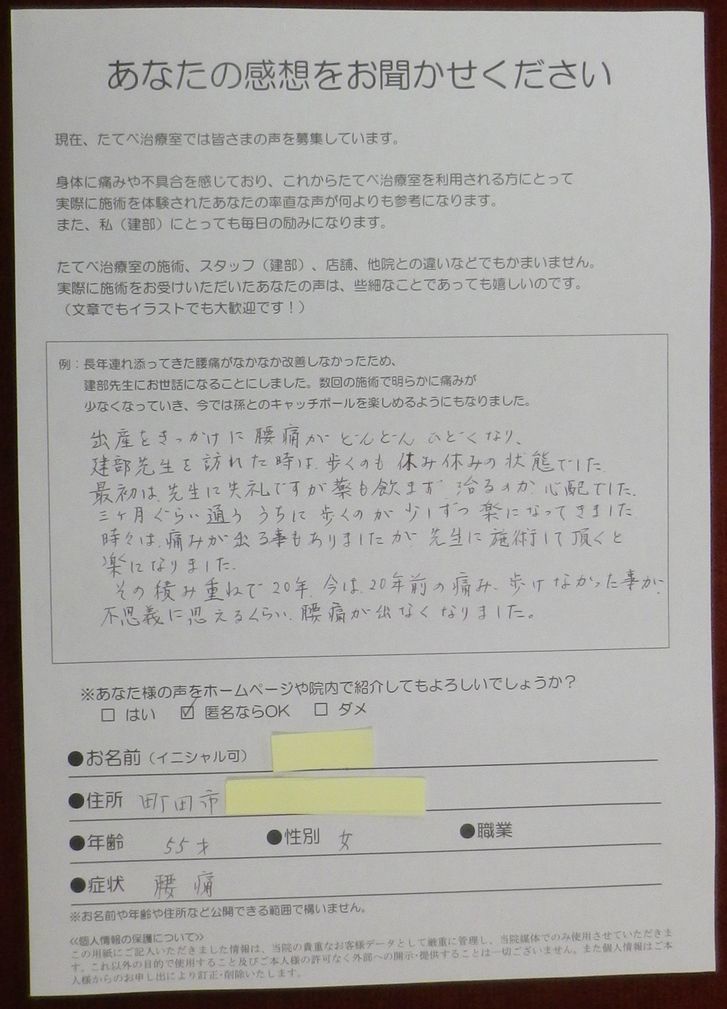 あなたの感想をお聞かせください
現在、たてべ治療室では皆さまの声を募集しています。
身体に痛みや不具合を感じており、これからたてべ治療室を利用される方にとって
実際に施術を体験されたあなたの率直な声が何よりも参考になります。
また、私（建部）にとっても毎日の励みになります。
たてべ治療室の施術、スタッフ（建部）、店舗、他院との違いなどでもかまいません。
実際に施術をお受けいただいたあなたの声は、些細なことであっても嬉しいのです。
（文章でもイラストでも大歓迎です！）
例：長年連れ添ってきた腰痛がなかなか改善しなかったため、
建部先生にお世話になることにしました。数回の施術で明らかに痛みが
少なくなっていき、今では孫とのキャッチボールを楽しめるようにもなりました。
出産をきっかけに腰痛がどんどんひどくなり、
建部先生を訪れた時は、歩くのも休み休みの状態でした。
最初は、先生に失礼ですが薬も飲まず、治るのか心配でした。
三ヶ月ぐらい通ううちに歩くのが少しずつ楽になってきました
時々は、痛みが出る事もありましたが先生に施術して頂くと
楽になりました。
その積み重ねで20年、今は、20年前の痛み、歩けなかった事が、
不思議に思えるくらい、腰痛が出なくなりました。
※あなた様の声をホームページや院内で紹介してもよろしいでしょうか？
□ はい ☑ 匿名ならOK □ ダメ
●お名前（イニシャル可）
●住所 町田市
●年齢 55才 ●性別 女 ●職業
●症状 腰痛
※お名前や年齢や住所など公開できる範囲で構いません。
≪個人情報の保護について≫
この用紙にご記入いただきました情報は、当院の貴重なお客様データとして厳重に管理し、当院媒体でのみ使用させていただきま
す。これ以外の目的で使用すること及びご本人様の許可なく外部への開示・提供することは一切ございません。また個人情報はご本
人様からのお申し出により訂正・削除いたします。